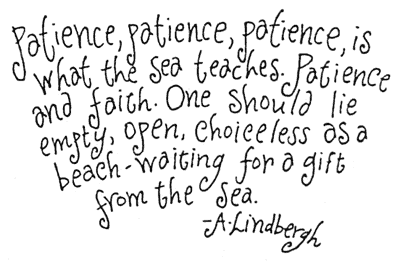 Patience, patience, patience, is
what the sea teaches. Patience
and faith. One should lie
empty, open, choiceless as a
beach-waiting for a gift
from the sea.
-A. Lindbergh